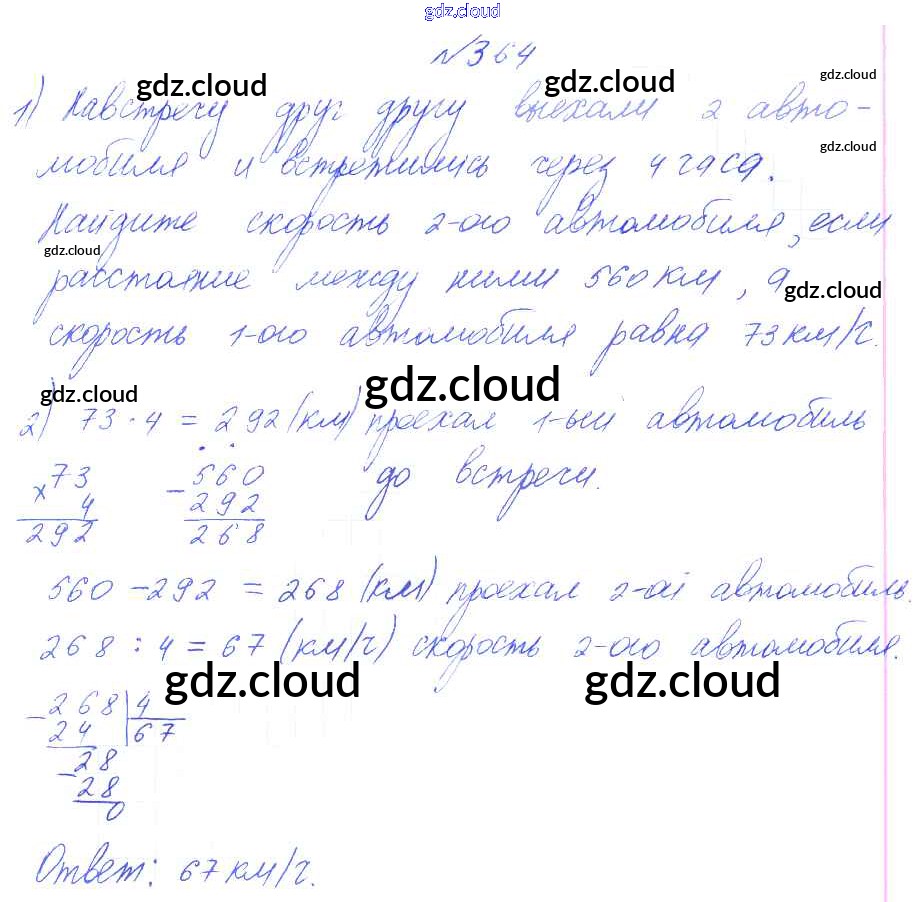 gdz.cloud
№364
gdz.cloud gdz.cloud gdz.cloud
1) Навстречу друг другу выехали 2 авто-
gdz.cloud
мобиля и встретились через 4 часа.
Найдите скорость 2-ого автомобиля, если
gdz.cloud
расстояние между ними 560 км, а
gdz.cloud
скорость 1-ого автомобиля равна 73 км/ч.
gdz.cloud gdz.cloud
2) 73 · 4 = 292 (км) проехал 1-ый автомобиль
до встречи.
× 73
4
292
− 560
292
268
560 − 292 = 268 (км) проехал 2-ой автомобиль.
268 : 4 = 67 (км/ч) скорость 2-ого автомобиля.
gdz.cloud gdz.cloud
− 268 | 4
24 67
− 28
28
0
Ответ: 67 км/ч.